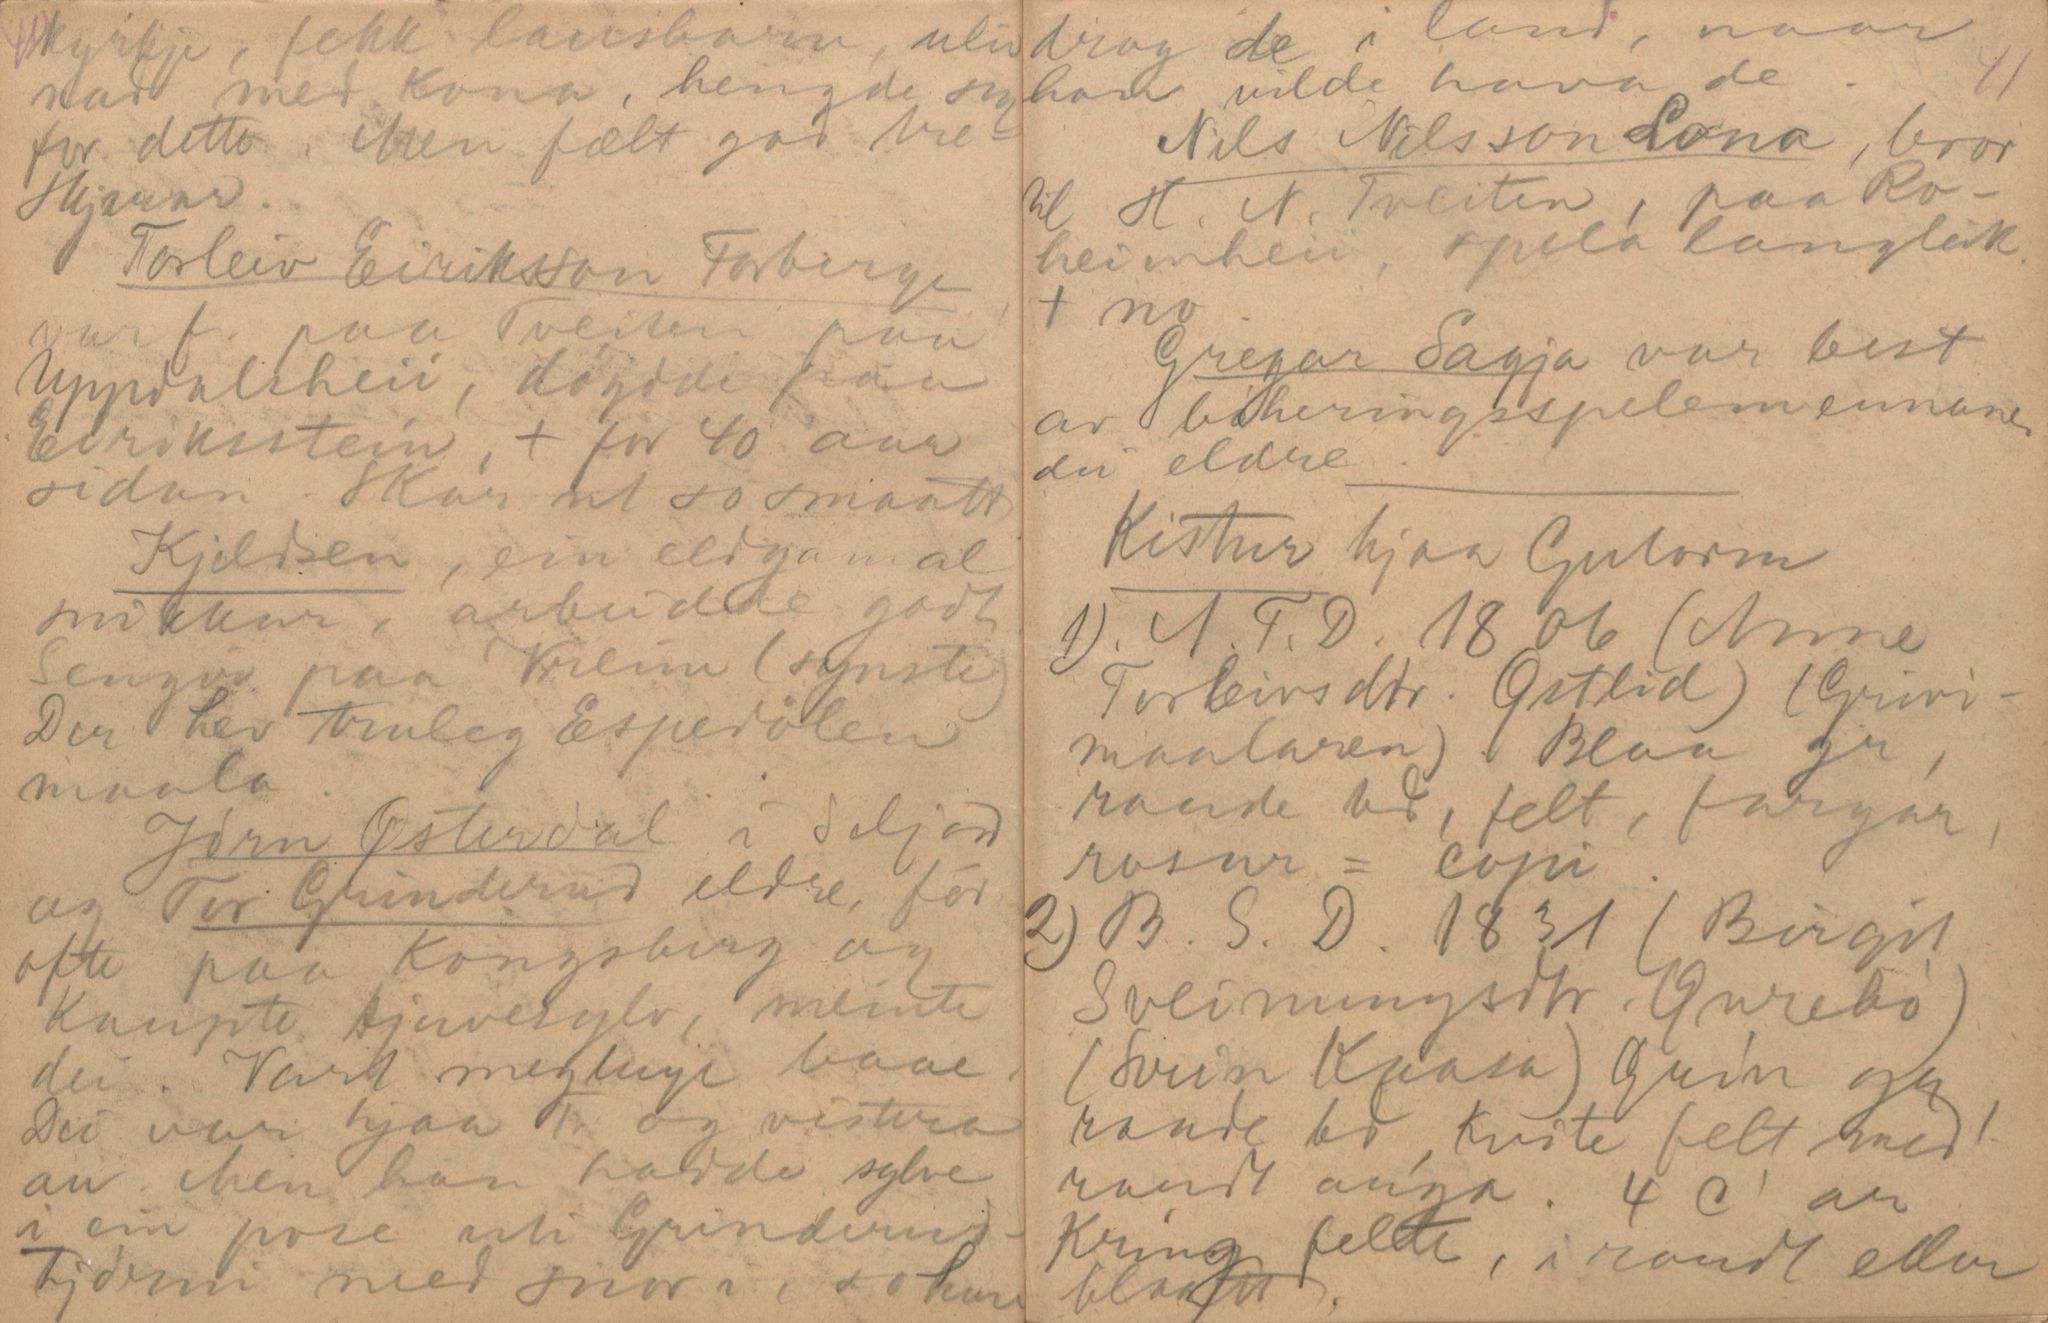 kyrkje, fekk lausbarn, uliv
nad med kona, hengde seg
for dette. Men fælt god tre-
skjerar.
Torleiv Eiriksson Forberge
var f. paa Tveiten paa
Uppdalsheii, döydde paa
Eiriksstein, + for 40 aar
sidan. Skar ut so smaatt
Kjeldsen, ein eldgamal
snikkar, arbeidde godt
Sengji paa Vreim (synste)
Der hev truleg Espedölen
maala.
Jörn Østerdal i Seljord
og Tor Grinderud eldre, för
ofte paa Kongsberg og
kaupte tjuvesylv, meinte
dei. Vart megtuge baae.
Dei var hjaa T. og vistera
au. Men han hadde sylve
i ein pose uti Grinderud-
tjörnni med snor i, so han
drog de i land, naar
han vilde hava de.
41
Nils Nilsson Lona, bror
til H. N. Tveiten, paa Ro-
heimheii, spela langleik.
+ no
Gregar Sagja var best
av böheringsspelemennane,
dei eldre.
Kistur hjaa Gulorm
1). A. T. D. 1806 (Anne
Torleivsdtr. Østlid) (Grivi-
maalaren). Blaa gr,
raude bd, felt, fargar,
rosur = copi.
2) B. S. D. 1831 (Birgit
Sveinungsdtr. Qurebö)
(Svein Kaasa) Grön gr
raude bd, kvite felt med
raudt auga. 4 C' ar
kring felte, i raudt eller
blaatt.